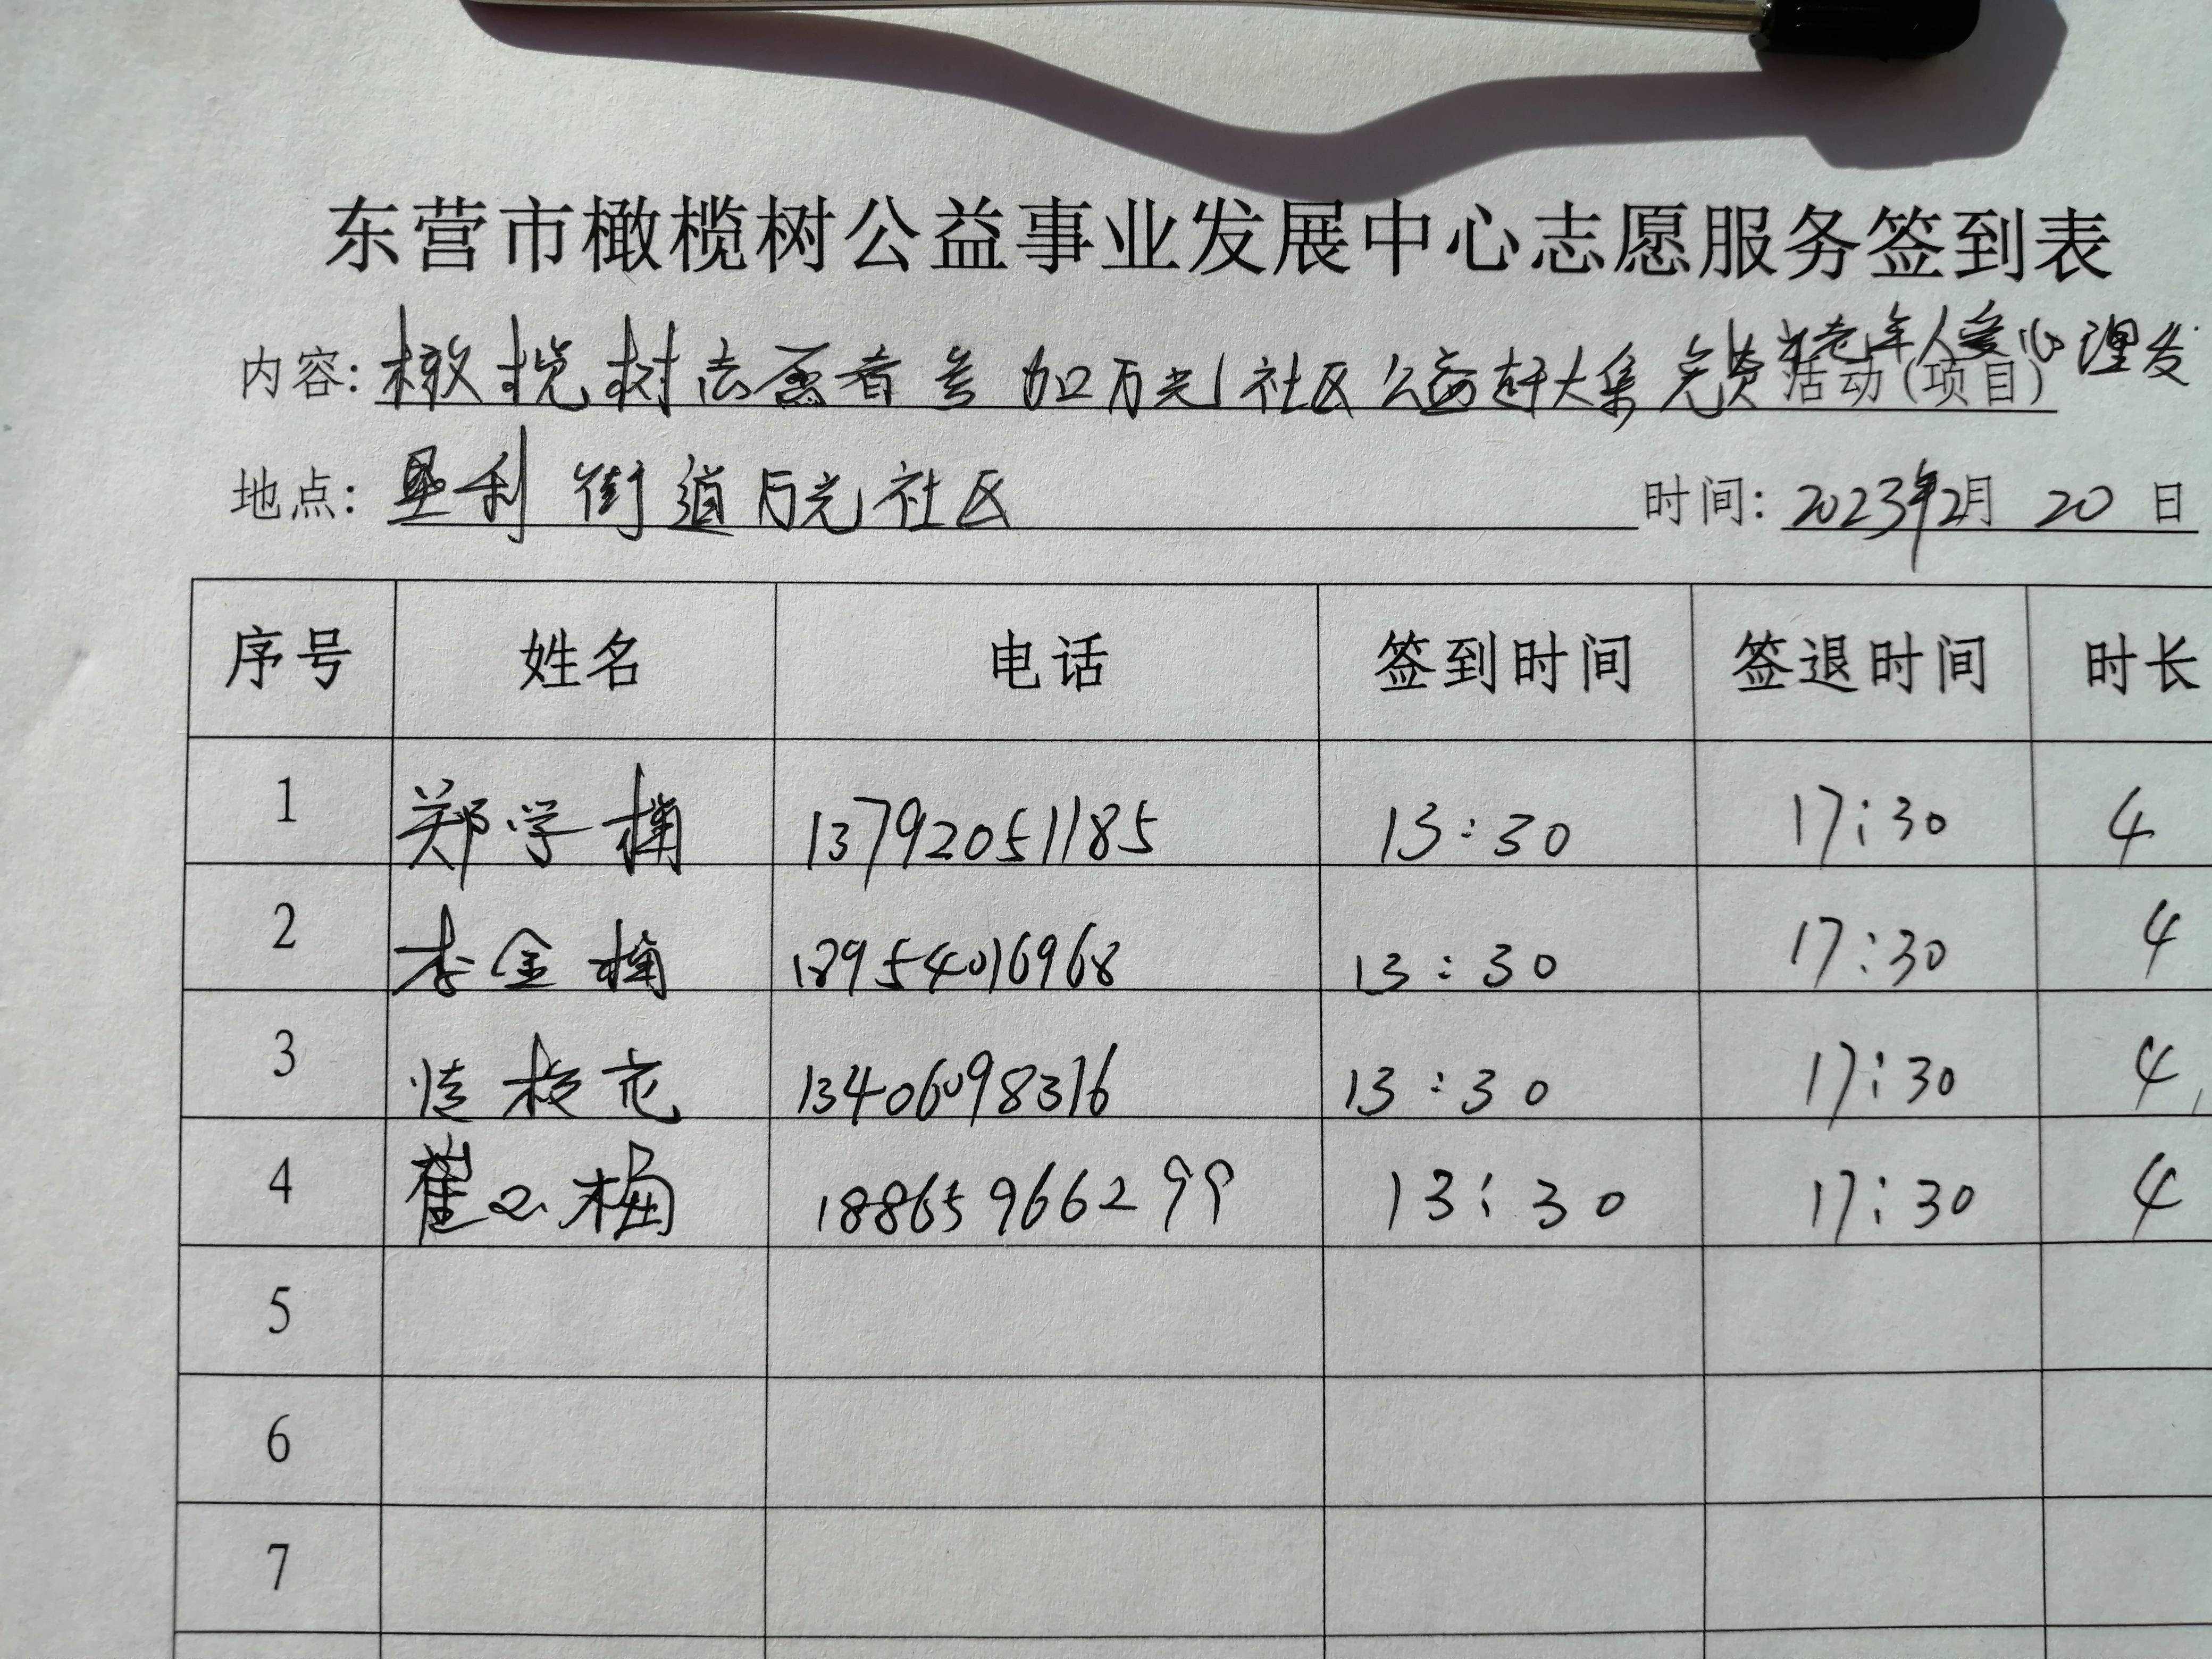 东营市橄榄树公益事业发展中心志愿服务签到表
内容: 橄榄树志愿者参加万光社区公益赶大集免费为老年人爱心理发活动(项目)
地点: 垦利街道万光社区 时间: 2023年2月20日
序号 姓名 电话 签到时间 签退时间 时长
1 郑学楠 13792051185 13:30 17:30 4
2 李金楠 18954016968 13:30 17:30 4
3 13406098316 13:30 17:30 4
4 崔 梅 18865966299 13:30 17:30 4
5
6
7